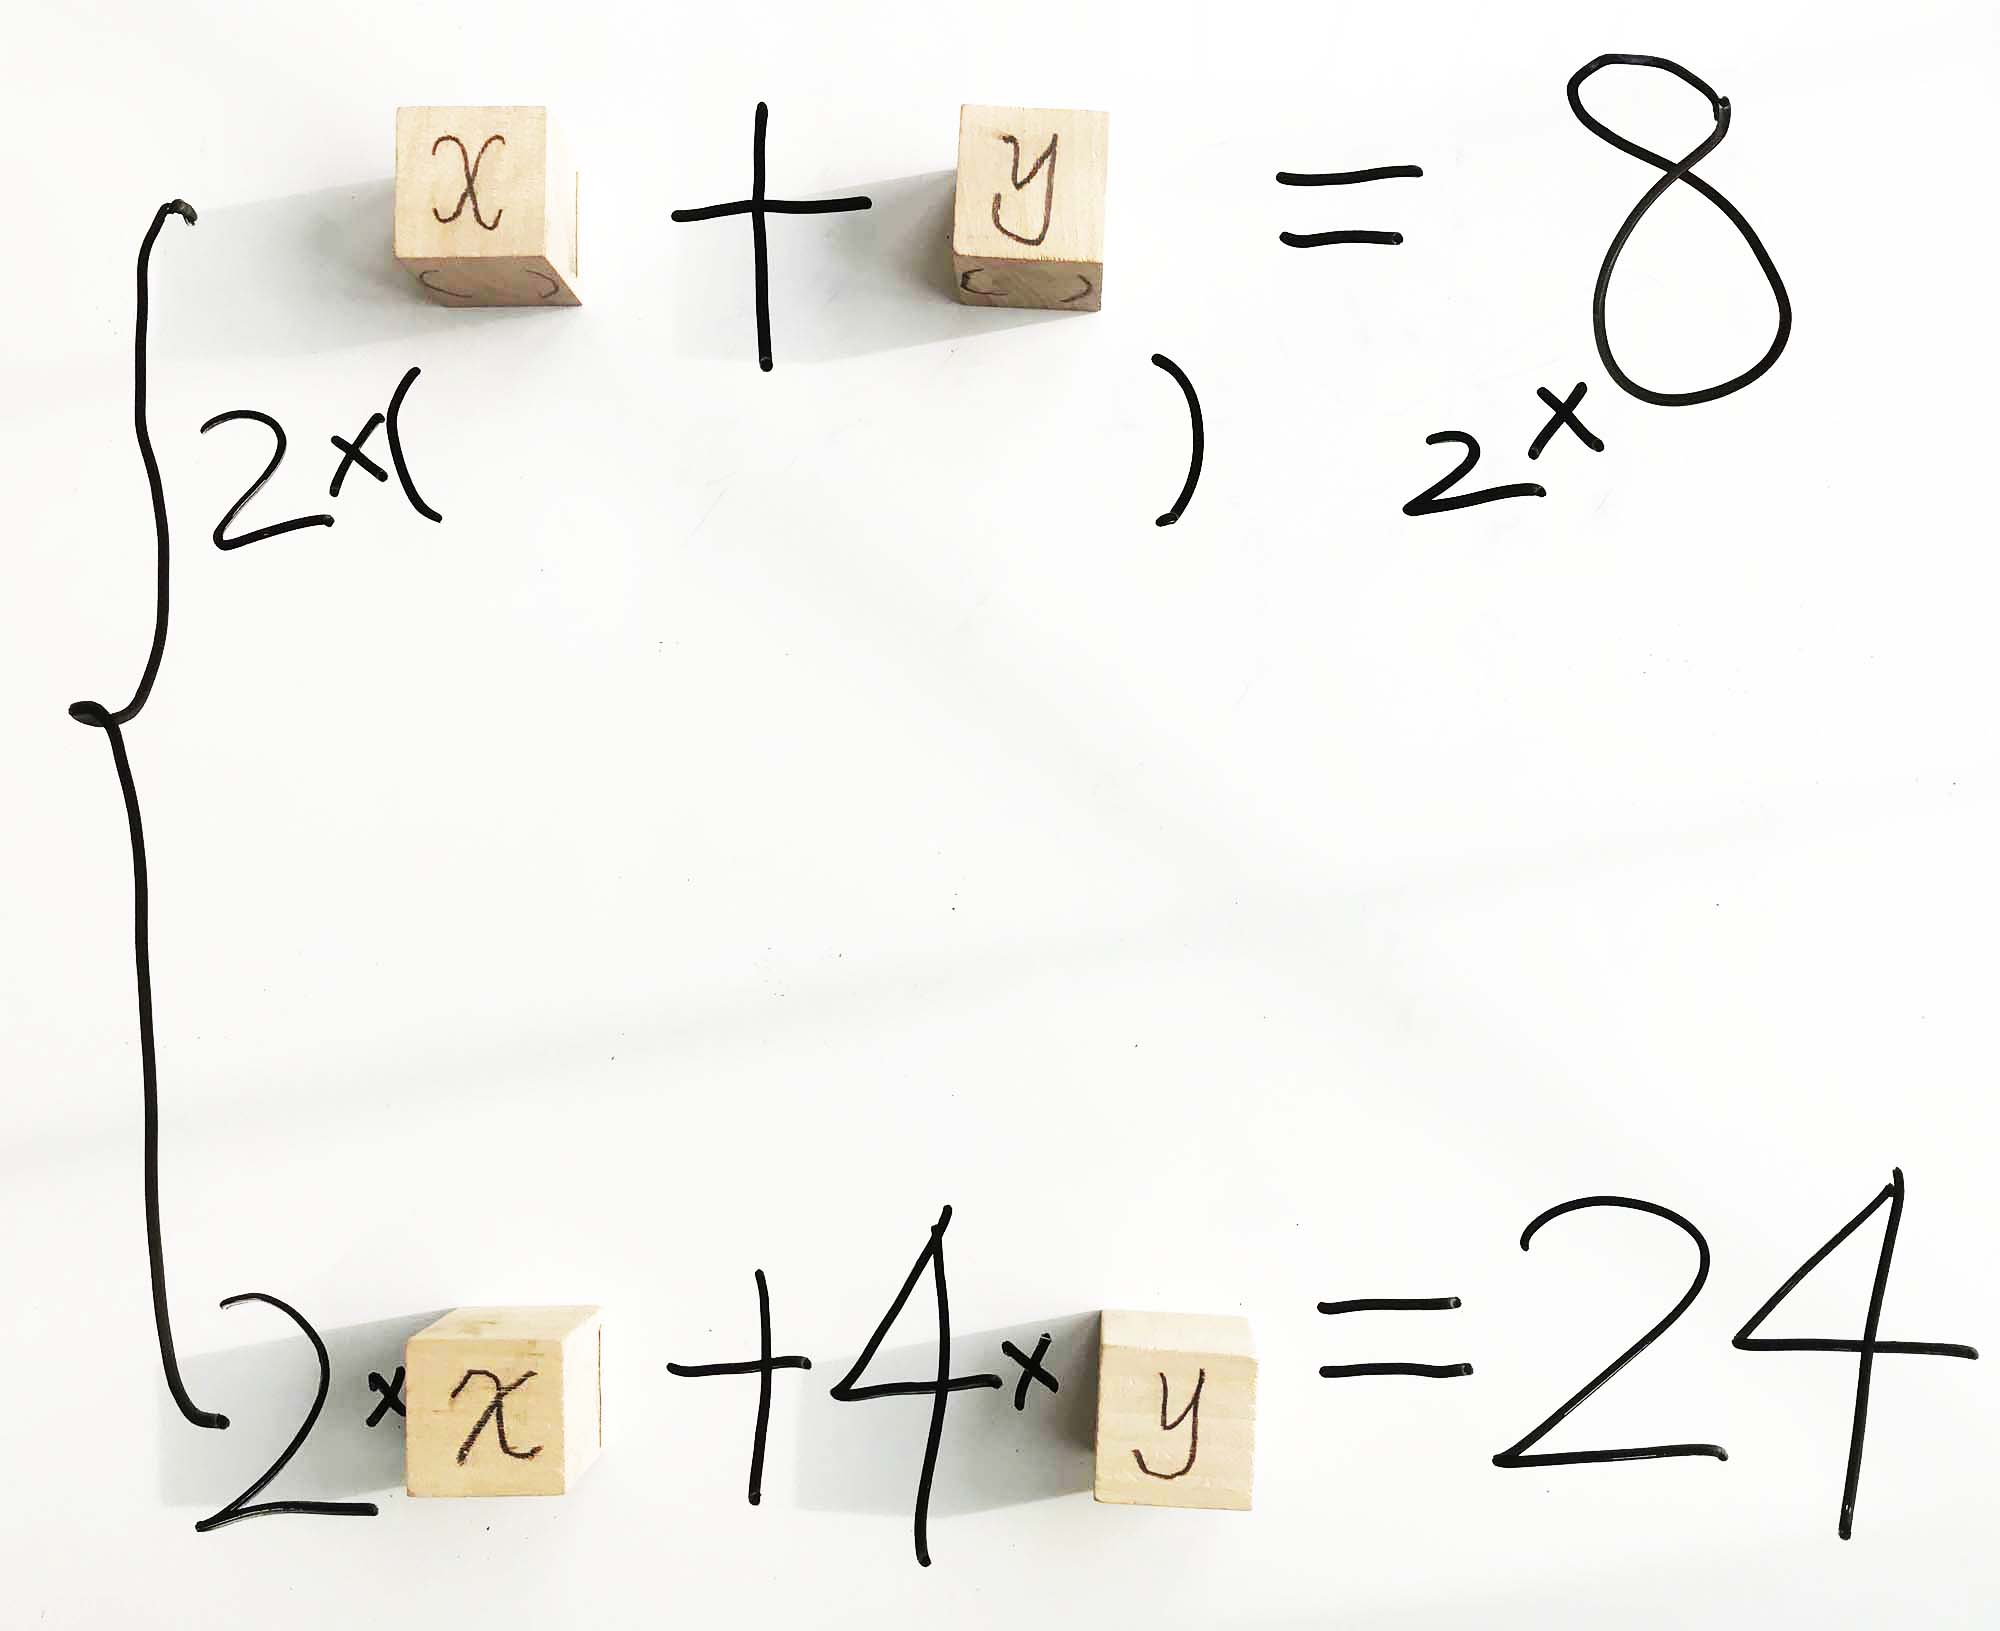 x + y = 8
2×( ) 2×
2×x + 4×y = 24